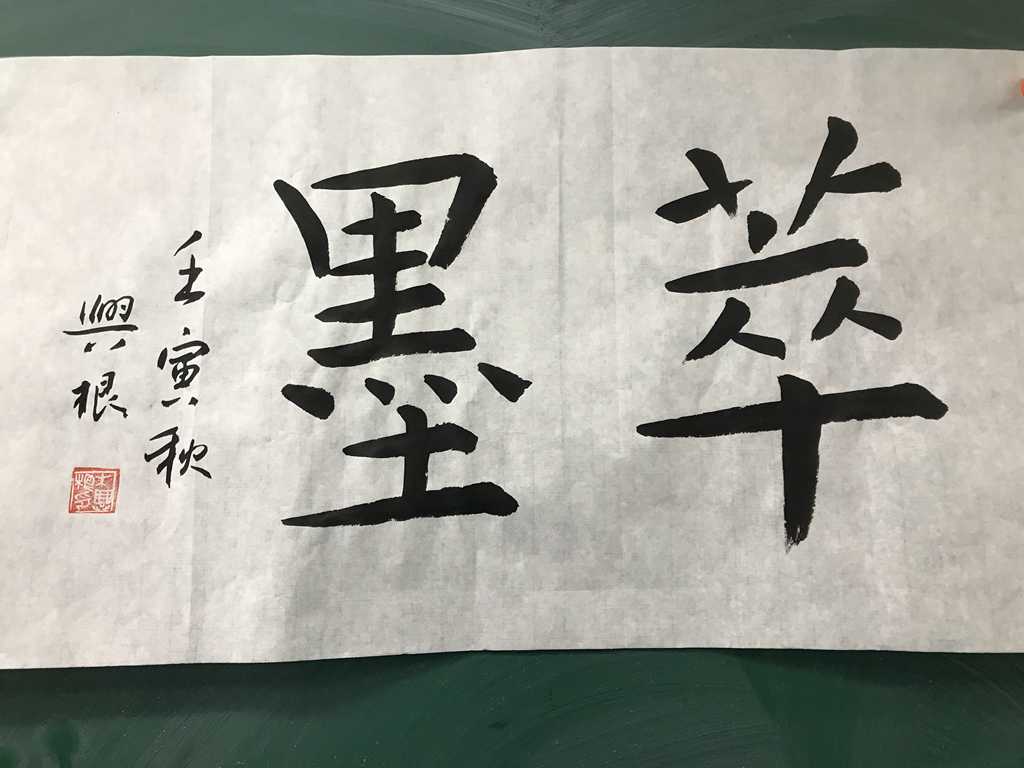 萃墨
壬寅秋
興根